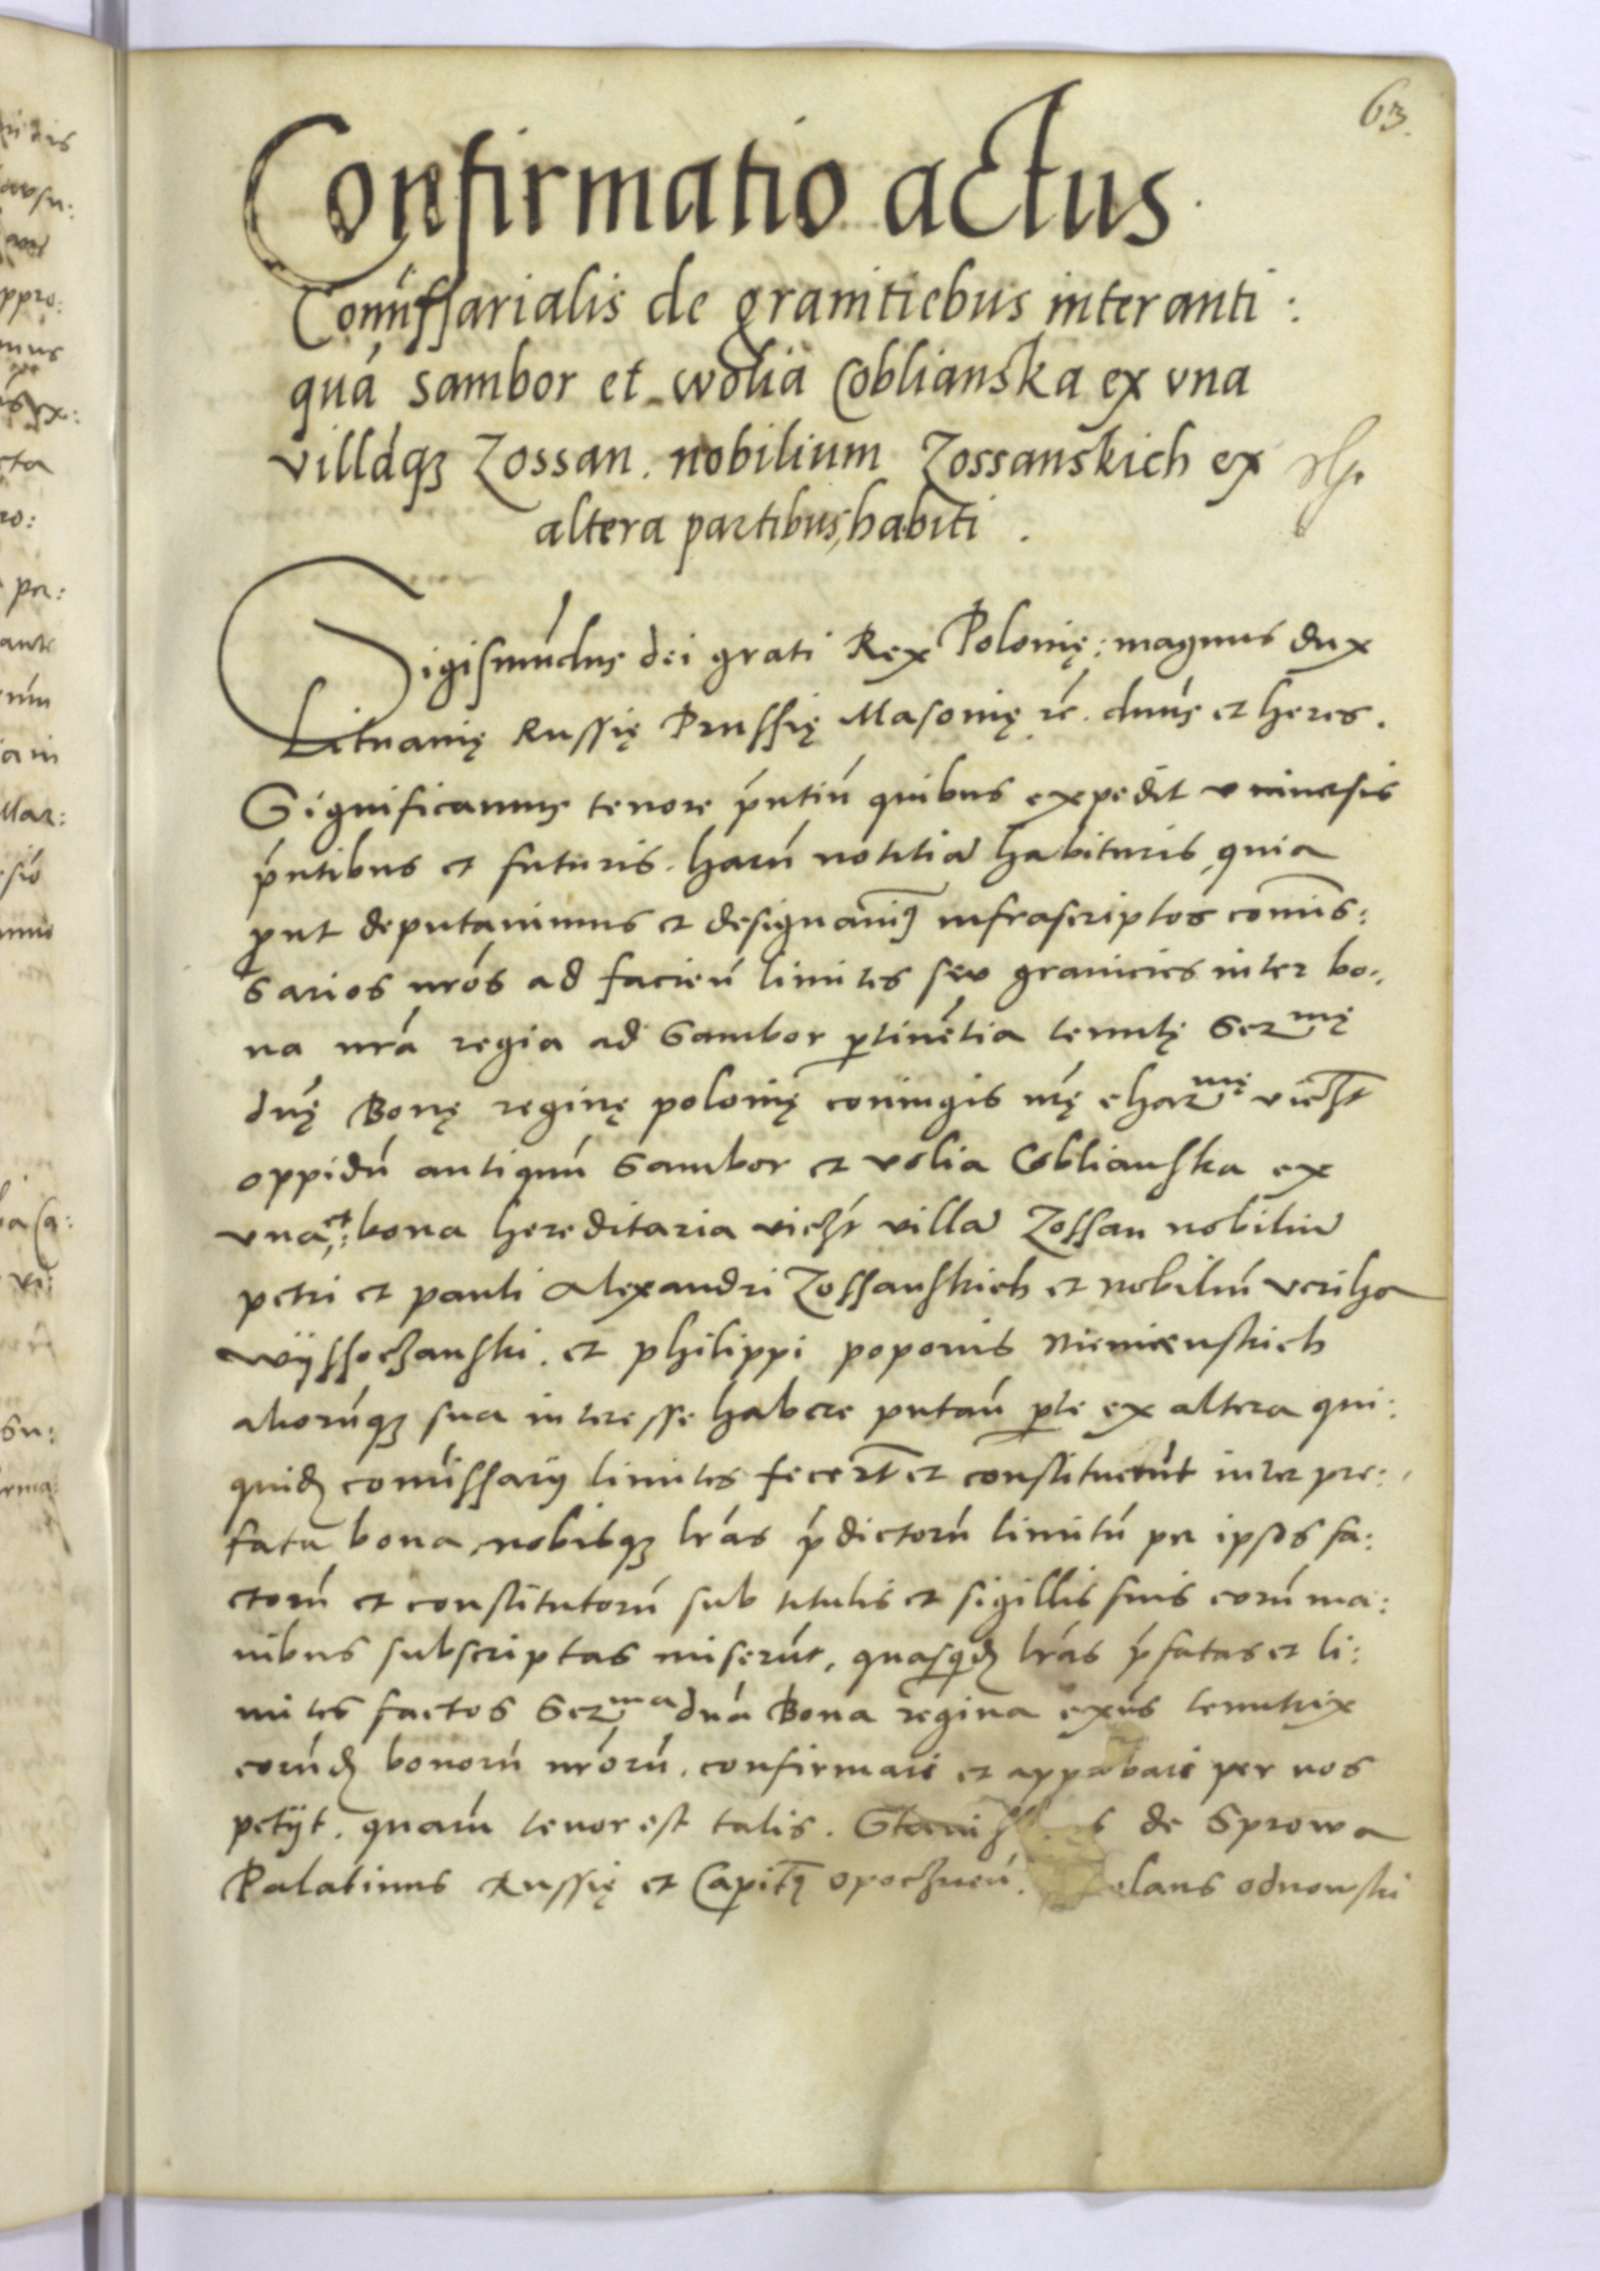 63.
Confirmatio actus
Comissarialis de granitiebus inter anti:
quá Sambor et wolia Coblianska ex vna
villáqꝫ Zossan. nobilium Zossanskich ex
altera partibus, habiti.
Sigismúdus dei grati Rex Polonię: magnus dux
Lituanię Russię Prussię Masonię rc̄. dnús et heres.
Significamus tenore pn̄tiū quibus expedit vniuersis
pn̄tibus et futuris. harū notitiā habituris, quia
put deputauimus et designauimꝰ infrascriptos comis:
sarios nrós ad facień limites seu granicies inter bo:
na nrá regia ad Sambor ptinētia tenutę Sermę
dnę Bonę reginę polonię coniugis nrę charmę viczt
oppidū antiquū Sambor et volia Coblianska ex
vna et: bona hereditaria viczt villā Zossan nobiliū
petri et pauli Alexandri Zossanskich et nobiliū
wyssoczanski. et philippi poponis
aliorūqꝫ sua interesse habere putań pte ex altera qui:
quidꝫ comissarij limites fecert et constituerūt inter pre:
fata bona, nobisqꝫ lrás pdictorū limitū per ipsos fa:
ctorū et constitutorū sub titulis et sigillis suis eorū ma:
nibus subscriptas miserūt, quasqdꝫ lrás pfatas et li:
mites factos Serma dná Bona regina tenutrix
eorūdꝫ bonorū nrórū. confirmari et approbari per nos
petijt. quarū tenor est talis. de Sprowa
Palatinus Russię et Capitꝫ opocznen. odnowski